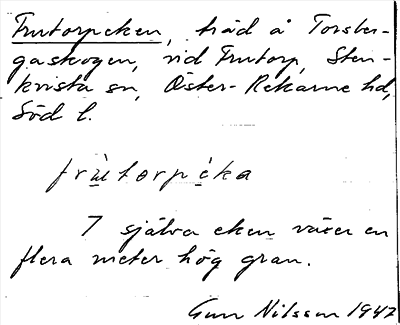 Frutorpeken, träd å Torsber-
gaskogen, vid Frutorp, Sten-
kvista sn, Öster-Rekarne hd,
Söd l.
frùtorpéka
I själva eken växer en
flera meter hög gran.
Gun Nilsson 1947